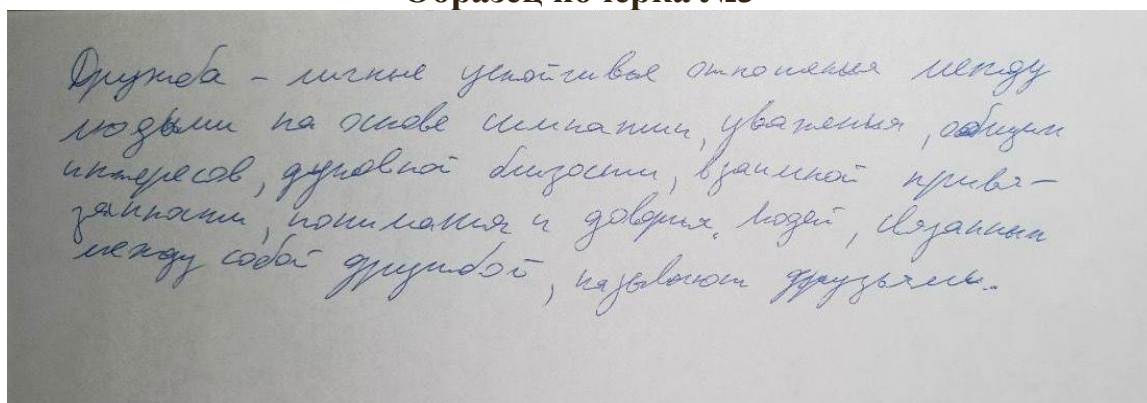 Образец почерка №3
Дружба – личные устойчивые отношения между
людьми на основе симпатии, уважения, общих
интересов, духовной близости, взаимной привя-
занности, понимания и доверия. Людей, связанных
между собой дружбой, называют друзьями.